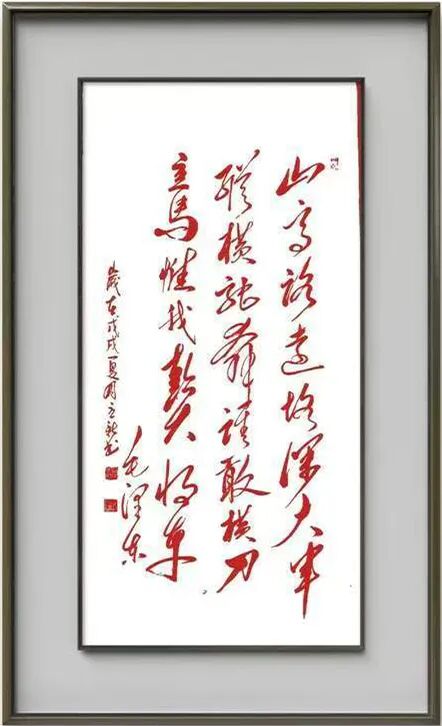 山高路遠坑深大軍
縱橫馳奔誰敢橫刀
立馬惟我彭大將軍
毛澤东
歲在戊戌夏